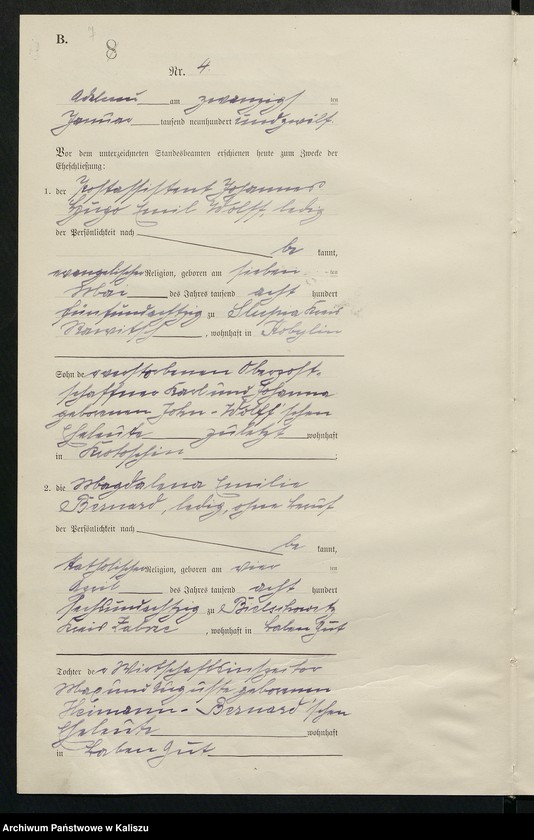 B.
8
Nr. 4
Adelnau am zwanzigsten
Januar tausend neunhundert und zwölf
Vor dem unterzeichneten Standesbeamten erschienen heute zum Zwecke der
Eheschließung:
1. der Postassistent Johannes
Hugo Emil Wolff, ledig
der Persönlichkeit nach
be kannt,
evangelischer Religion, geboren am sieben ten
Mai des Jahres tausend acht hundert
fünfundachtzig zu Slupia Kreis
Rawitsch, wohnhaft in Kobylin
Sohn der verstorbenen Oberpost-
schaffner Karl und Johanna
geborenen John - Wolff'schen
Eheleute zuletzt wohnhaft
in Krotoschin
2. die Magdalena Emilie
Bernard, ledig, ohne Beruf
der Persönlichkeit nach
be kannt,
katholischer Religion, geboren am vier ten
April des Jahres tausend acht hundert
sechsundachtzig zu Bielschowitz
Kreis Zabrze, wohnhaft in Gut
Tochter der Wirtschaftsinspektor
Max und Auguste geborenen
Heimann - Bernard'schen
Eheleute wohnhaft
in Gut
Archiwum Państwowe w Kaliszu